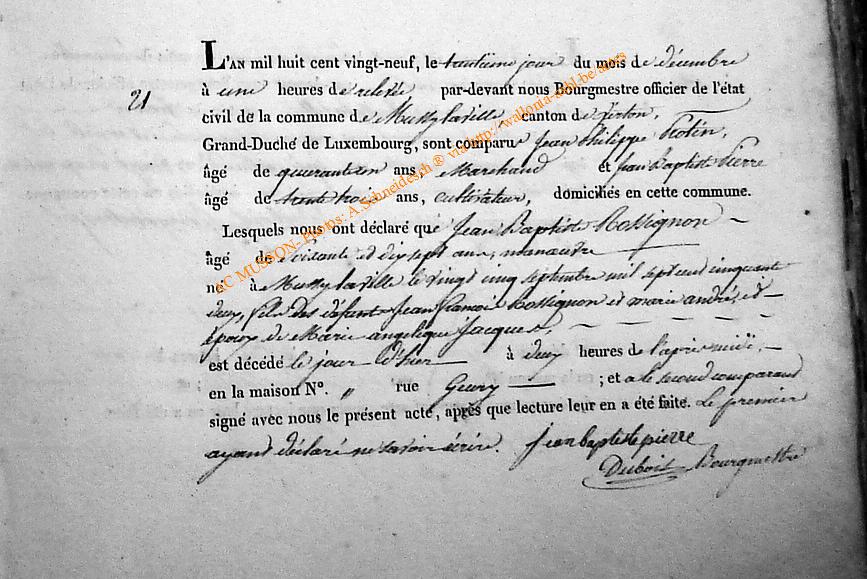 L'AN mil huit cent vingt-neuf, le trentième jour du mois de décembre
21
à une heures de relevée par-devant nous Bourgmestre officier de l'état
civil de la commune de Mussy laville, canton de Virton,
Grand-Duché de Luxembourg, sont comparus Jean Philippe
âgé de quarante un ans, Marchand et Jean Baptiste Pierre
âgé de trente trois ans, cultivateur, domiciliés en cette commune.
Lesquels nous ont déclaré que Jean Baptiste Rossignon
âgé de soixante et dix sept ans, manœuvre
né à Mussy laville le vingt cinq septembre mil sept cent cinquante
deux, fils des défunts Jean françois Rossignon et marie andré, et
époux de Marie angelique Jacques,
est décédé le jour d'hier à deux heures de l'après midi,
en la maison N°. " rue Gevry ; et a le second comparant
signé avec nous le présent acte, après que lecture leur en a été faite. Le premier
ayant déclaré ne savoir écrire. jean baptiste pierre
Duboit Bourgmestre
AC MUSSON- Photos: A.Schneidesch ® via http://wallonia-asbl.be/actes